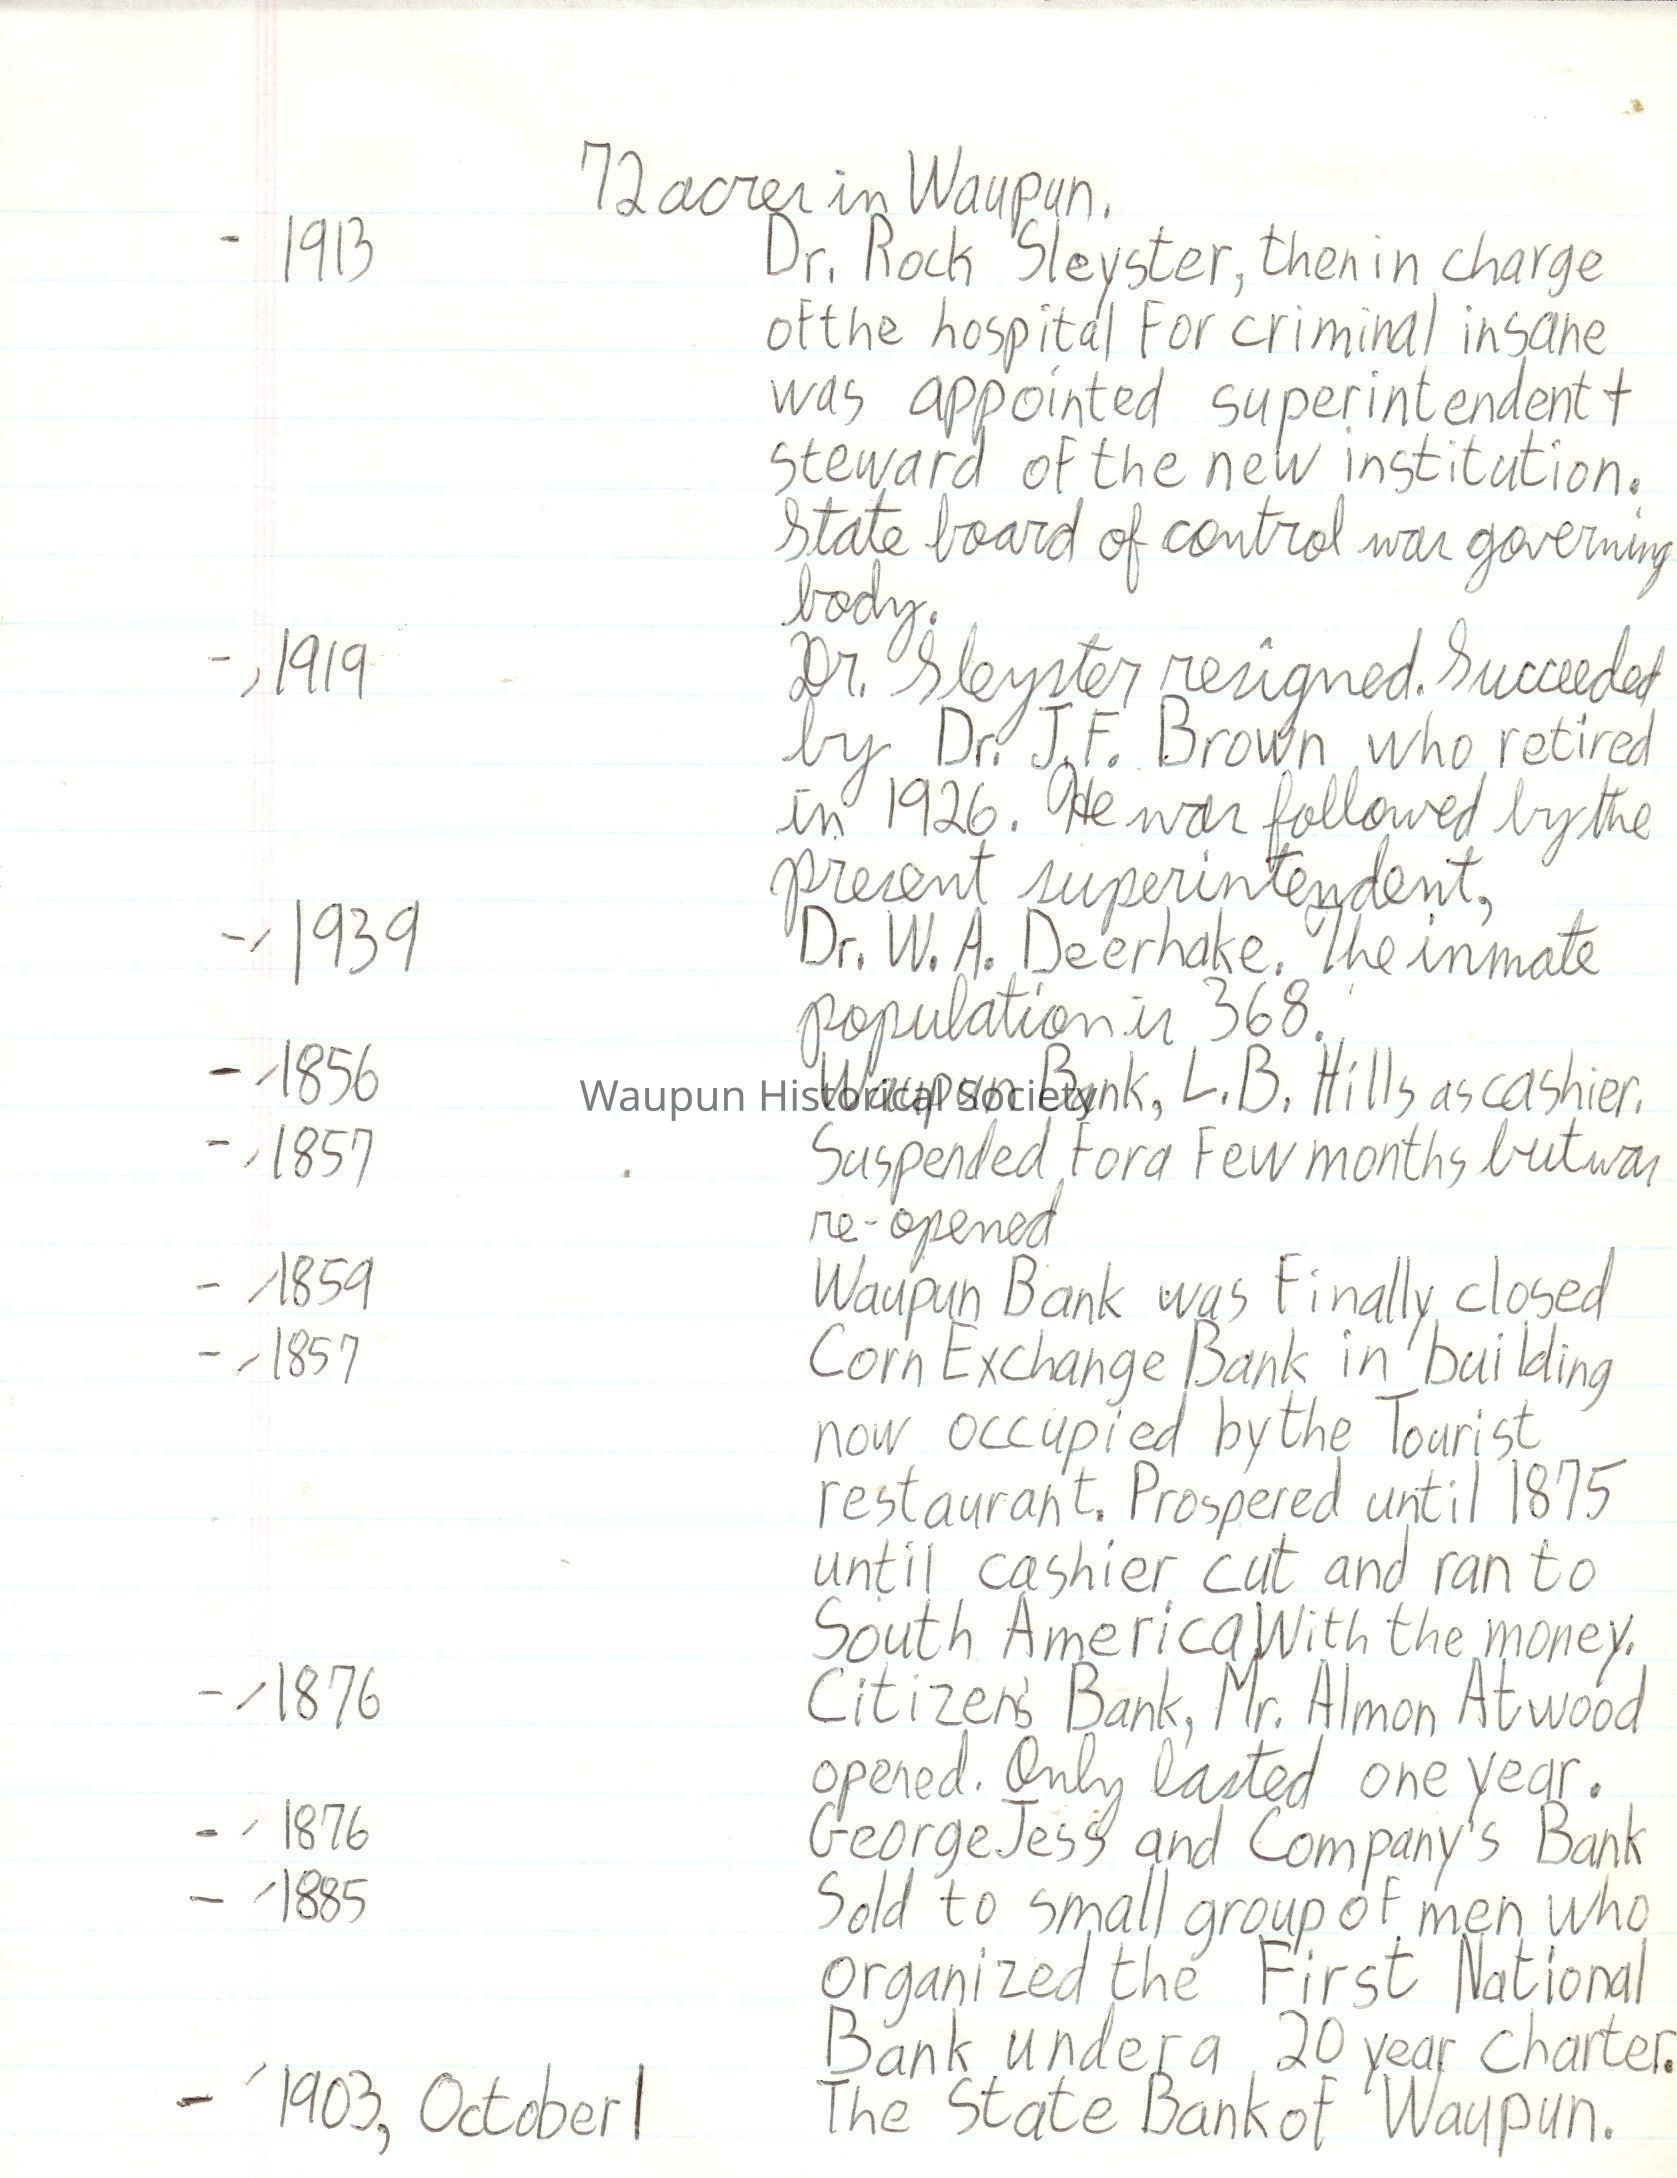 72 acres in Waupun.
- 1913 Dr. Rock Sleyster, then in charge
of the hospital for criminal insane
was appointed superintendent +
steward of the new institution.
State board of control was governing
body.
- 1919 Dr. Sleyster resigned. Succeeded
by Dr. J.F. Brown who retired
in 1926. He was followed by the
present superintendent,
- 1939 Dr. W. A. Deerhake. The inmate
population is 368.
- 1856 Waupun Bank, L.B. Hills as cashier.
Waupun Historical Society
- 1857 Suspended for a few months but was
re-opened
- 1859 Waupun Bank was finally closed
- 1857 Corn Exchange Bank in building
now occupied by the Tourist
restaurant. Prospered until 1875
until cashier cut and ran to
South America With the money.
- 1876 Citizen's Bank, Mr. Almon Atwood
opened. Only lasted one year.
- 1876 George Jess and Company's Bank
- 1885 Sold to small group of men who
organized the First National
Bank under a 20 year charter.
- 1903, October 1 The State Bank of Waupun.